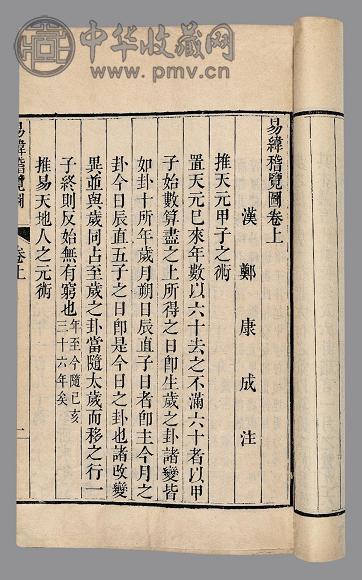 中华收藏网
www.pmv.cn
易緯稽覽圖卷上
漢 鄭康成 注
推天元甲子之術
置天元已來年數以六十去之不滿六十者以甲
子始數算盡之上所得之日卽生歲之卦諸變皆
如卦十所年歲月朔日辰直子日者卽主今月之
卦今日辰直五子之日卽是今日之卦也諸改變
異並與歲同占至歲之卦當隨太歲而移之行一
子終則反始無有窮也年至今隨己亥
三十六年矣
推易天地人之元術
易緯稽覽圖 卷上 一